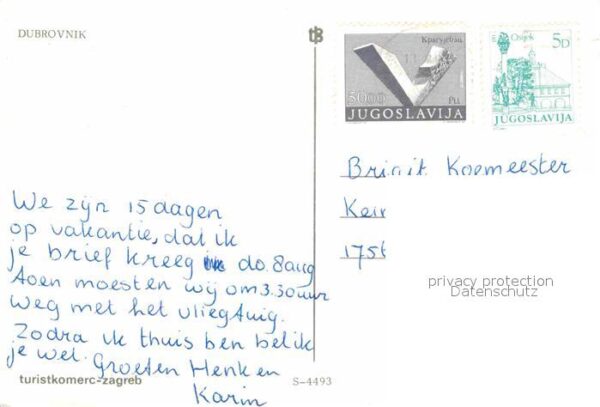 DUBROVNIK
Крагујевац
30.00
Din
JUGOSLAVIJA
Osijek
5D
JUGOSLAVIJA
Brigit Koemeester
Keir
175t
privacy protection
Datenschutz
We zijn 15 dagen
op vakantie, dat ik
je brief kreeg do. 8 aug
toen moesten wij om 3.30 uur
weg met het vliegtuig.
Zodra ik thuis ben bel ik
je wel. Groeten Henk en
Karin
turistkomerc-zagreb
S-4493